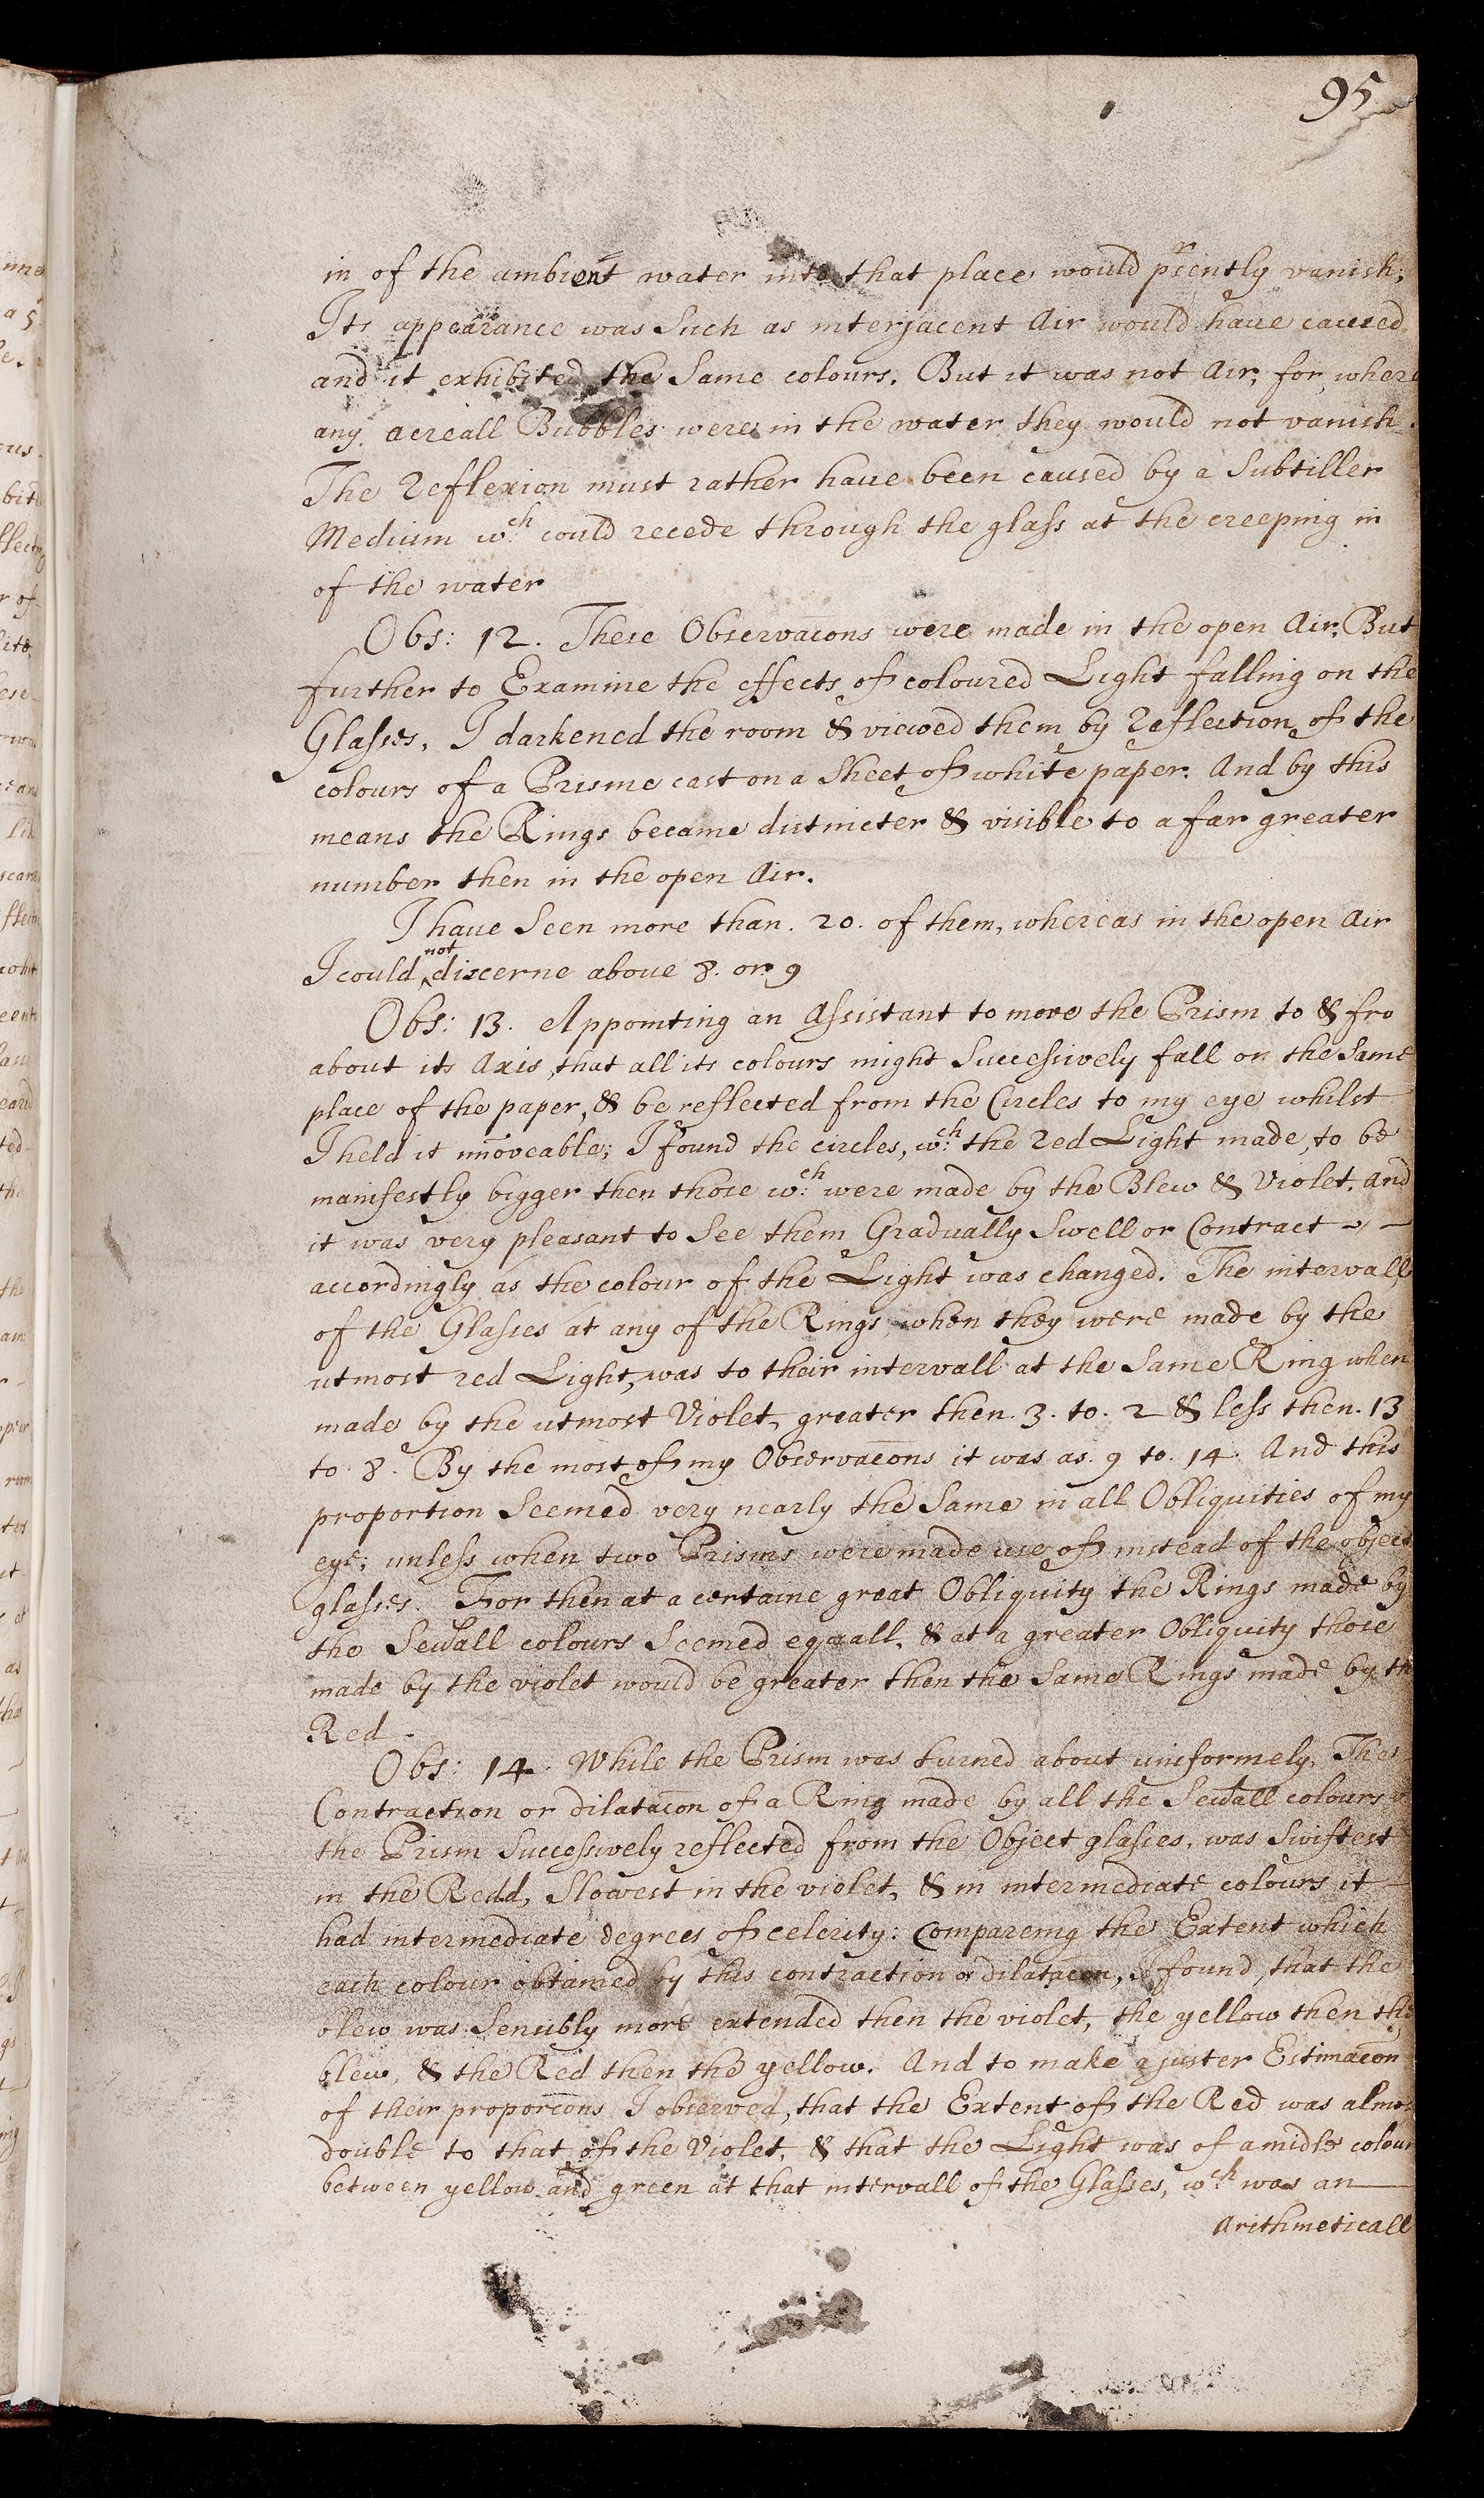 95
in of the ambient water into that place would p^rsently vanish;
Its appearance was Such as interjacent Air would haue caused,
and it exhibited the Same colours. But it was not Air, for where
any aereall Bubbles were in the water they would not vanish.
The Reflexion must rather haue been caused by a Subtiller
Medium w:^ch could recede through the glass at the creeping in
of the water
Obs: 12. These Observac̄ons were made in the open Air. But
further to Examine the effects of coloured Light falling on the
Glasses, I darkened the room & viewed them by Reflection of the
colours of a Prisme cast on a Sheet of white paper. And by this
means the Rings became distincter & visible to a far greater
number then in the open Air.
I haue Seen more than. 20. of them, whereas in the open Air
I could ^not discerne aboue 8. or 9
Obs: 13. Appointing an Assistant to move the Prism to & fro
about its Axis, that all its colours might Successively fall on the Same
place of the paper, & be reflected from the Circles to my eye whilst
I held it im̄oveable; I found the circles, w:^ch the Red Light made, to be
manifestly bigger then those w:^ch were made by the Blew & Violet. And
it was very pleasant to See them Gradually Swell or Contract
accordingly as the colour of the Light was changed. The intervall
of the Glasses at any of the Rings when they were made by the
utmost red Light, was to their intervall at the Same Ring when
made by the utmost Violet, greater then. 3. to. 2 & less then. 13
to. 8. By the most of my Observac̄ons it was as. 9 to. 14. And this
proportion Seemed very nearly the Same in all Obliquities of my
eye; unless when two Prisms were made use of instead of the object
glasses. For then at a certaine great Obliquity the Rings made by
the Sew̄all colours Seemed equall, & at a greater Obliquity those
made by the violet would be greater then the Same Rings made by th
Red.
Obs: 14. While the Prism was turned about uniformely, The
Contraction or dilatac̄on of a Ring made by all the Sew̄all colours
the Prism Successively reflected from the Object glasses, was Swiftest
in the Redd, Slowest in the violet, & in intermediate colours it
had intermediate degrees of celerity: Compareing the Extent which
each colour obtained by this contraction or dilatac̄on, I found, that the
blew was Sensibly more extended then the violet, the yellow then the
blew, & the Red then the yellow. And to make a juster Estimac̄on
of their proporc̄ons I observed, that the Extent of the Red was almos
double to that of the Violet, & that the Light was of a midle colour
between yellow and green at that intervall of the Glasses, w:^ch was an
Arithmeticall